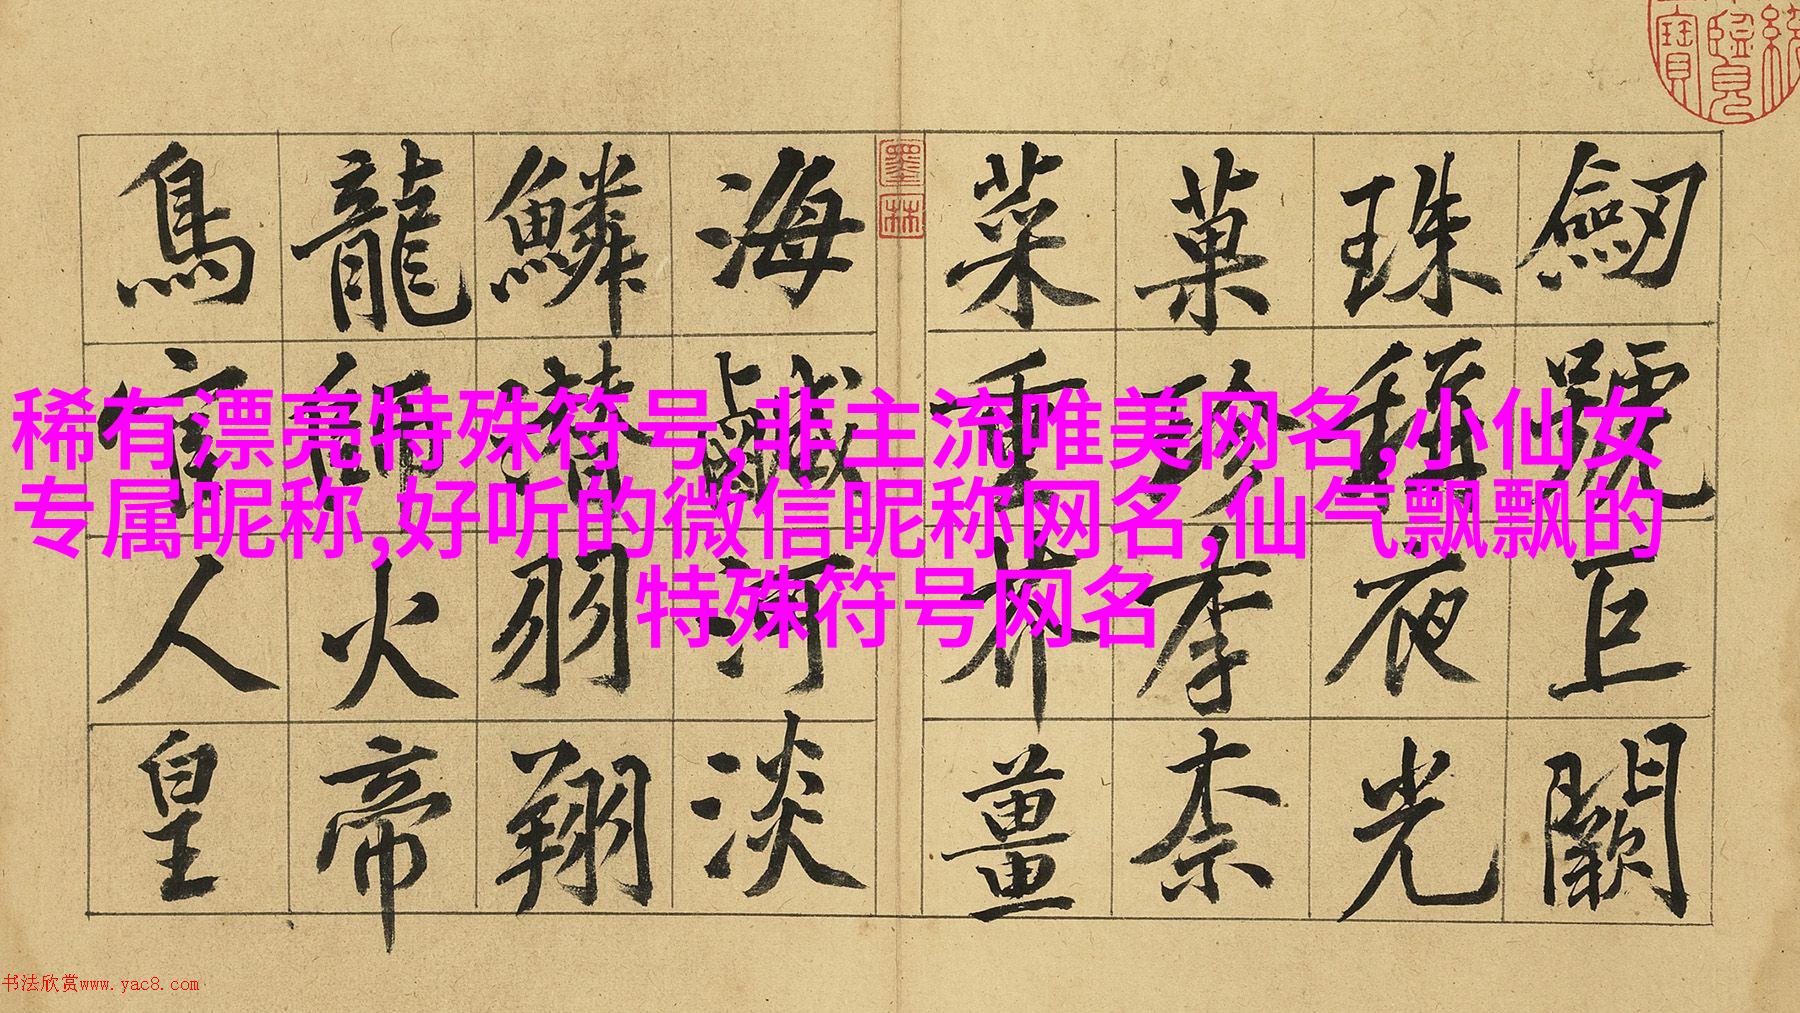 稀有漂亮特殊符号,非主流唯美网名,小仙女
专属昵称,好听的微信昵称网名,仙气飘飘的
特殊符号网名
劒號巨闕
珠稱夜光
菓珍李柰
菜重芥薑
海鹹河淡
鱗潛羽翔
龍師火帝
鳥官人皇
墨林
书法欣赏www.yac8.com